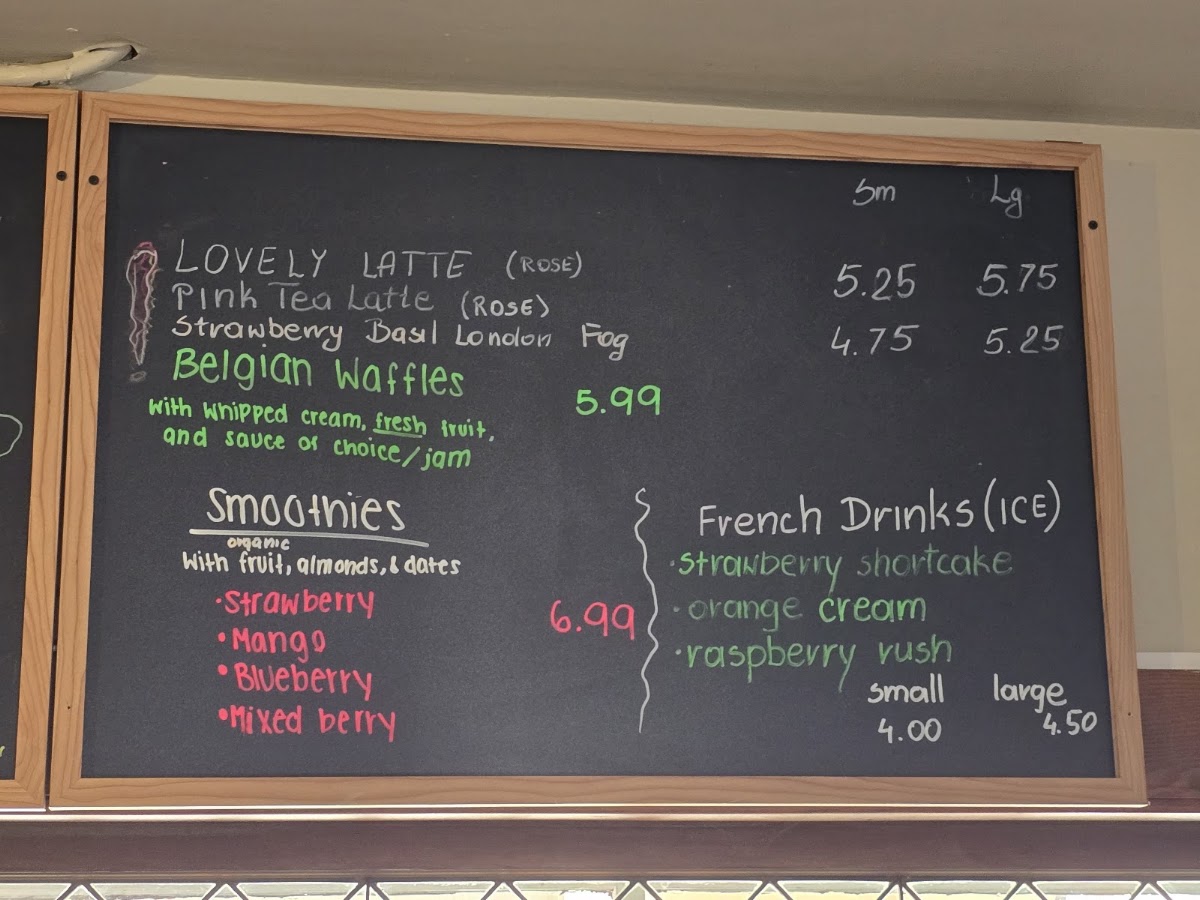 Sm Lg
LOVELY LATTE (ROSE) 5.25 5.75
Pink Tea Latte (ROSE)
Strawberry Basil London Fog 4.75 5.25
Belgian Waffles 5.99
with whipped cream, fresh fruit,
and sauce of choice/jam
Smoothies
organic
With fruit, almonds, & dates
•Strawberry
•Mango
•Blueberry
•Mixed berry
6.99
French Drinks (ICE)
•strawberry shortcake
•orange cream
•raspberry rush
small large
4.00 4.50